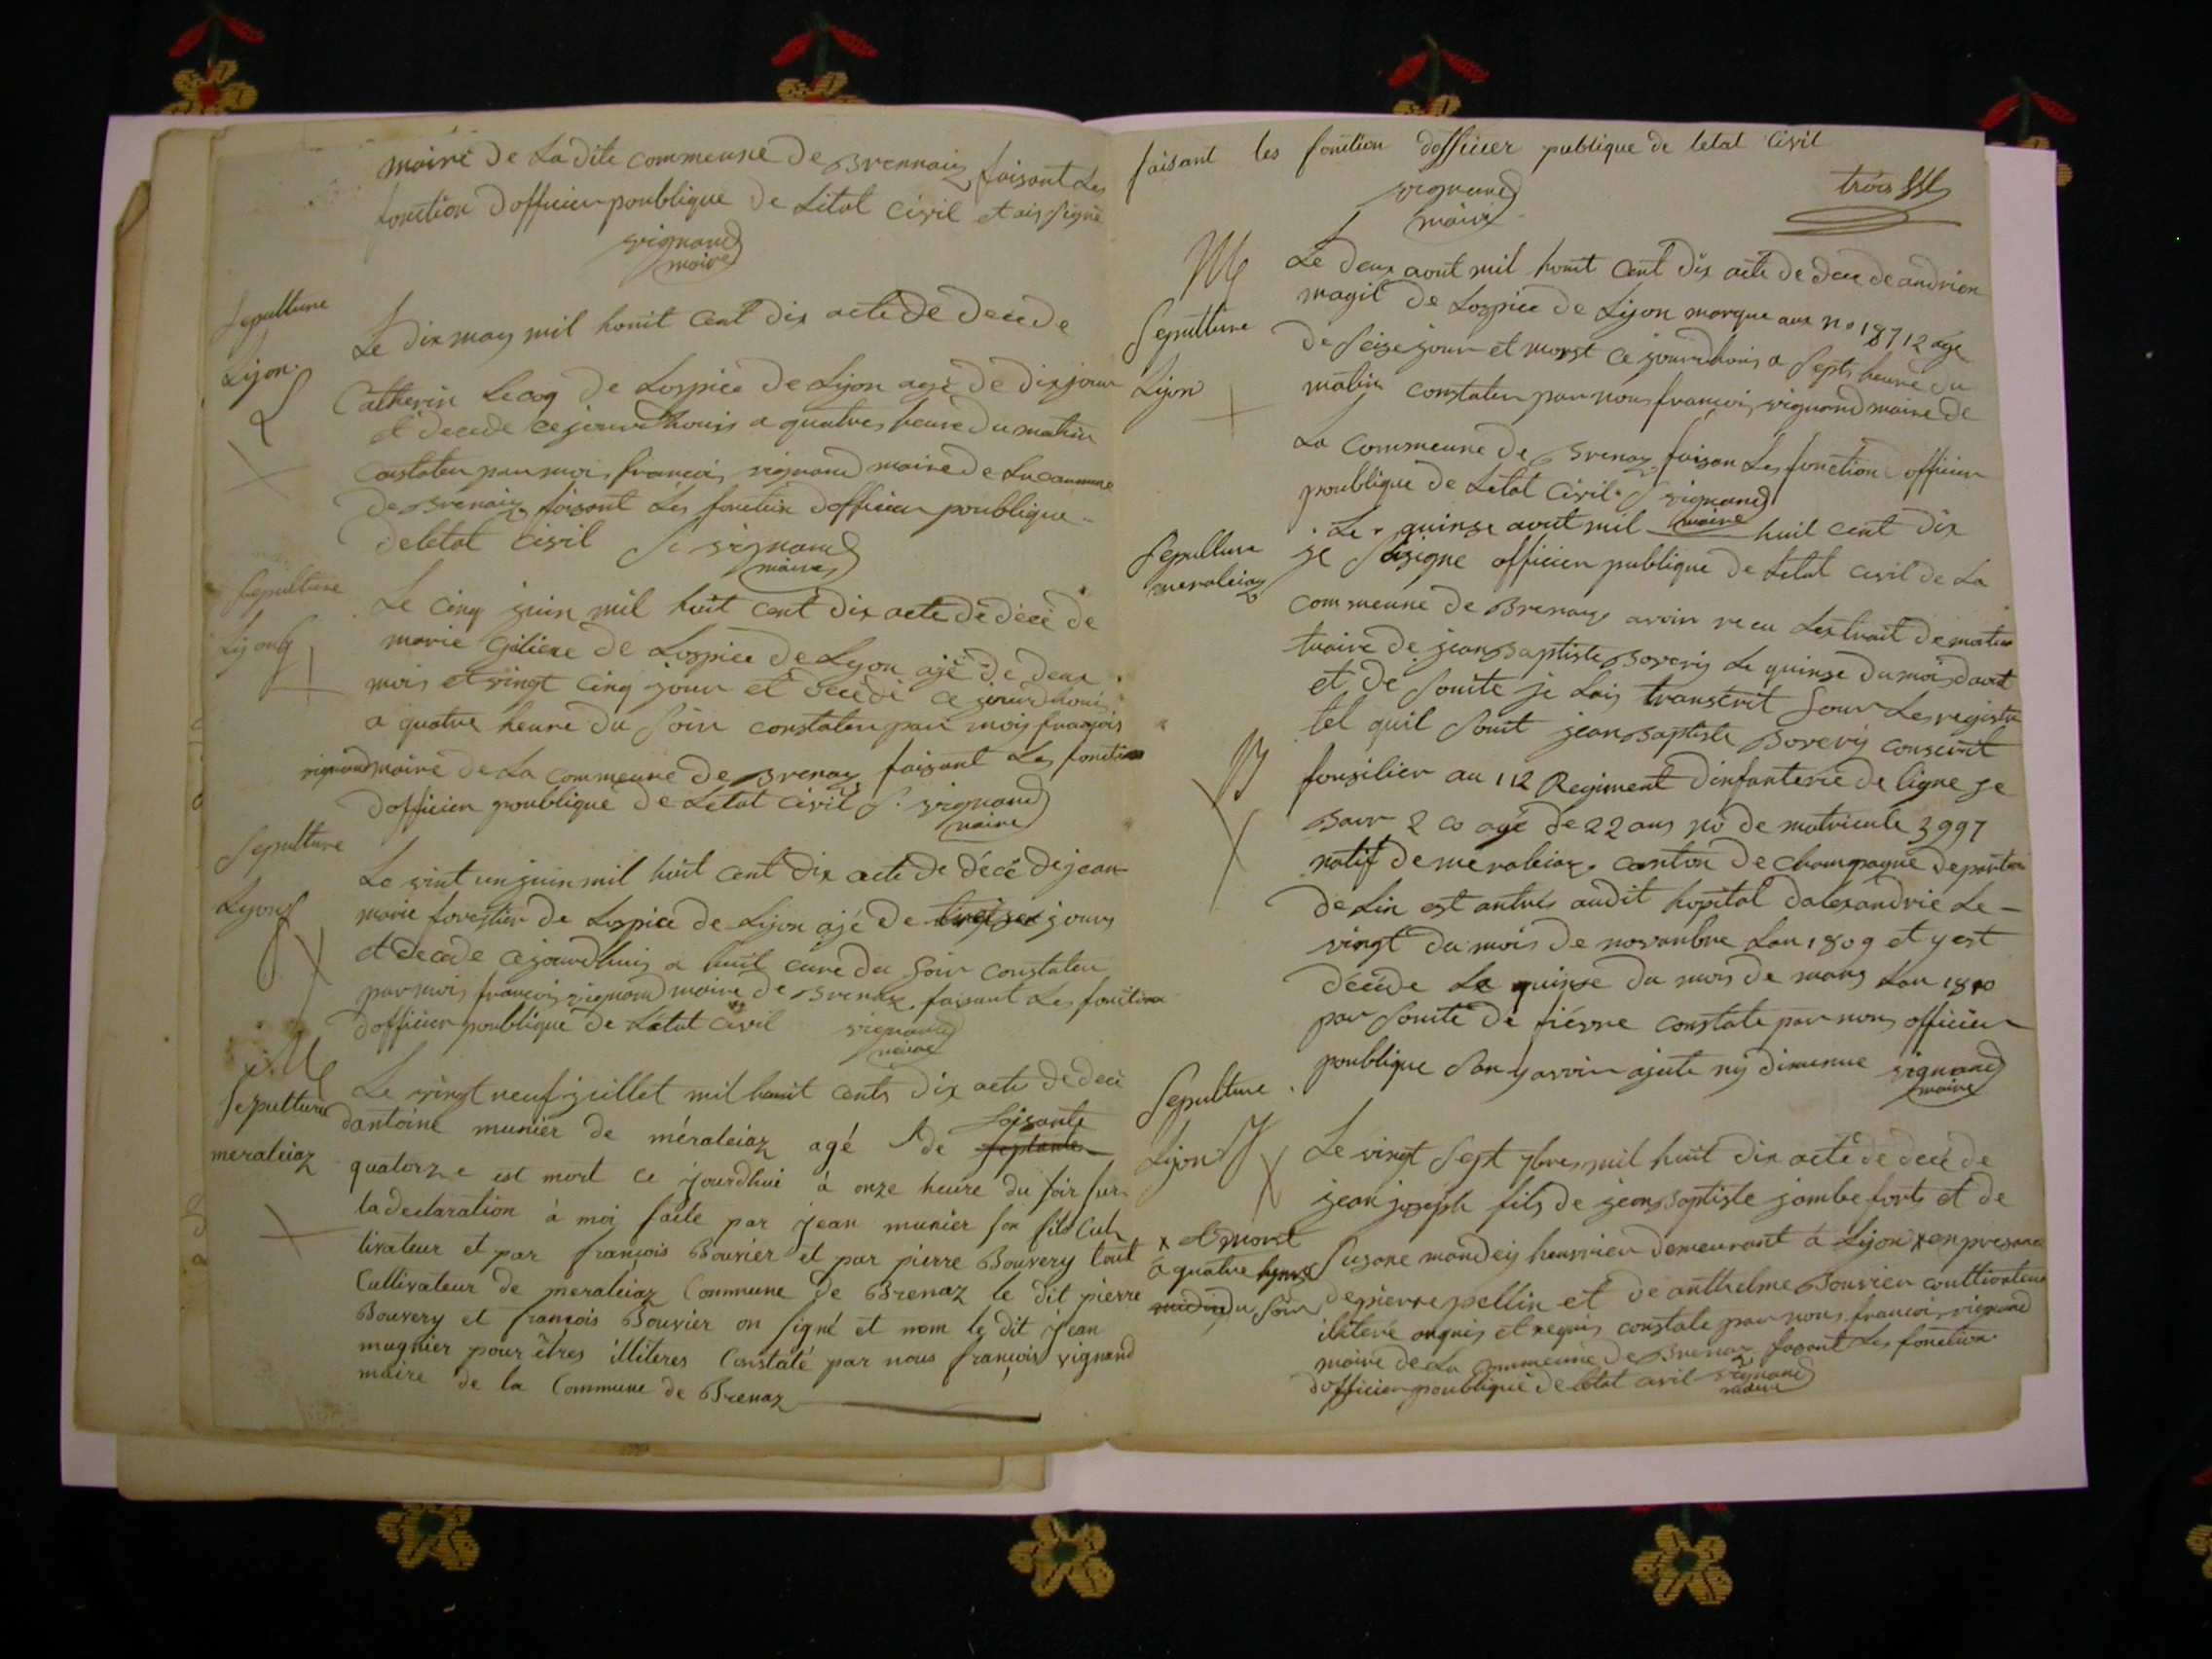 maire de La dite commeune de Brennaiz faisant Les
fonction dofficier poublique de Létat Civil et ais signé
vignand
maire
Sepulture
Lijon.
Le dix may mil houit cent dix acte de decede
Catherin Lecoq de Lospice de Lijon agé de dix jour
et decede cejourdhouis a quatres heure du matin
Constater par moi francois vignand maire de La commune
de Brenaiz faisant Les fonction dofficier poublique
deletat Civil S vignand
maire
Sepulture
Lijong
Le cinq juin mil huit cent dix acte de décé de
marie Giliere de Lospice de Lyon ajé de deux
mois et vingt cinq jour et décédé ce jourdhouis
a quatre heure du soir constater par mois francois
vignand maire de La commeune de Brenaz faisant Les fonction
dofficier poublique de Letat Civil S. vignand
maire
Sepulture
Lyong
Le vint un juin mil huit cent dix acte de décé de jean
marie forestier de Lospice de Lijon ajé de treize jours
et decede cejourdhuis a huit eure du soir constater
par mois francois vignand maire de Brenaz faisant Les fonction
dofficier poublique de Létat Civil vignand
maire
M
Sepulture
meraleiaz
Le vingt neuf juillet mil houit cents dix acte de decé
dantoine munier de méraleiaz agé de septante soisante
quatorze est mort ce jourdhui à onze heure du soir sur
la declaration à moi faite par jean munier son fils cul
tivateur et par françois Bouvier et par pierre Bouvery tout
Cultivateur de meraleiaz Commune de Brenaz le dit pierre
Bouvery et françois Bouvier on signé et nom le dit jean
mugnier pour êtres illiteres Constaté par nous françois vignand
maire de la Commune de Brenaz
faisant les fonction dofficier publique de letat Civil
vignand
maire
trois
M
Sepulture
Lijon
Le deux aout mil houit cent dix acte de dece de andrien
magit de Lospice de Lijon marque aux no 18712 age
de seize jour et morst ce jourdhouis a septs heure du
matin constater par nous francois vignand maire de
La Commeune de Brenaz faison Les fonction officier
poublique de Létat Civil. S vignand
maire
Sepulture
meraleiaz
Le quinse aout mil huit cent dix
je sosigne officier publique de Letat civil de La
commeune de Brenaz avoir recu Lextrait de mortu
tuaire de jean Baptiste Boveriy Le quinse du mois daout
et de souite je Lais transcrit sour Les registre
tel quil souit jean Baptiste Boveriy conscrit
B
fousilier au 112 Regiment dinfanterie de ligne 5e
Baon 2 co agé de 22 ans no de matricule 3997
natif de meraleiaz canton de champagne departem
de Lin est antrés audit hopital dalexandrie Le
vingt du mois de novanbre Lan 1809 et y est
décéde Le quinse du mois de mars Lan 1810
par souite de fiévre constate par nous officier
poublique san y avoir ajute niy dimenue vignand
maire
Sepulture
Lijon
Le vingt sept 7bres mil huit dix acte de decé de
jean joseph fils de jean Baptiste jambe forts et de
x et morst
a quatre heures
midi du soir
susane mandeiy heuvrier demeurant à Lijon x en presance
de pierre pellin et de anthelme Bouvier coultivateur
iliteré enquis et requis constate par nous francois vignand
maire de La Commeune de Brenaz fasant Les fonction
dofficier poublique de Letat civil vignand
maire